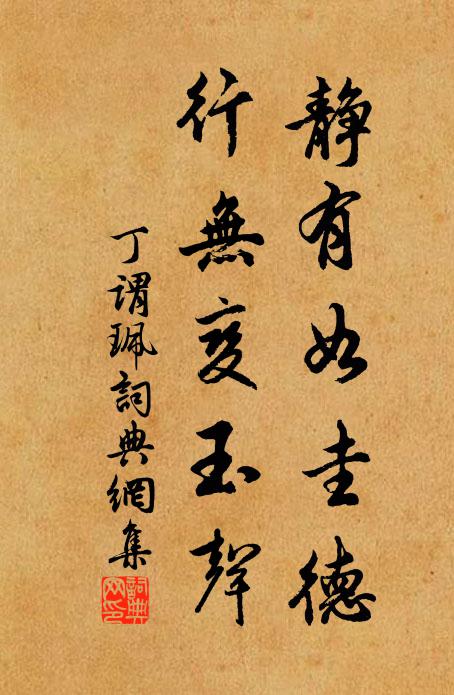 静有如圭德
行無变玉聲
丁謂珮詞典網集
詞典网印